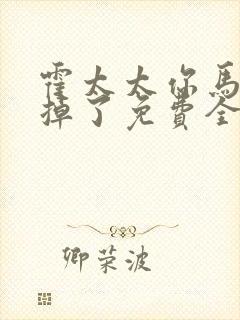 霍太太你馬
掉了免費全
卿荣波